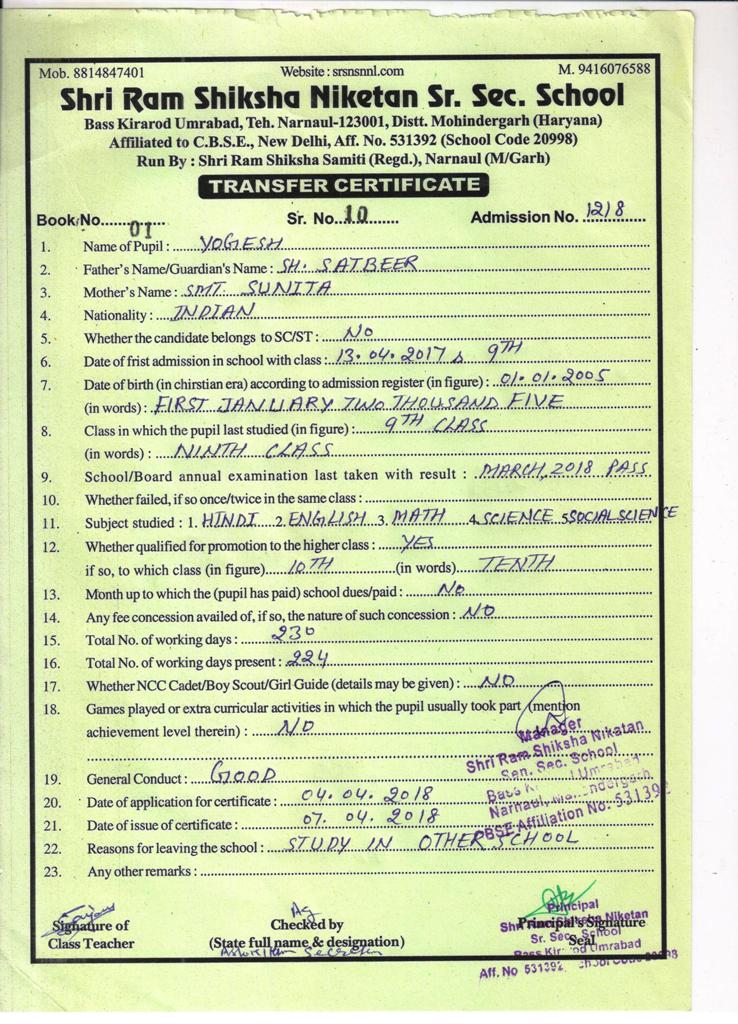 Mob. 8814847401 Website : srsnsnnl.com M. 9416076588
Shri Ram Shiksha Niketan Sr. Sec. School
Bass Kirarod Umrabad, Teh. Narnaul-123001, Distt. Mohindergarh (Haryana)
Affiliated to C.B.S.E., New Delhi, Aff. No. 531392 (School Code 20998)
Run By : Shri Ram Shiksha Samiti (Regd.), Narnaul (M/Garh)
TRANSFER CERTIFICATE
Book No. 01 Sr. No. 10 Admission No. 1218
1. Name of Pupil : YOGESH
2. Father's Name/Guardian's Name : SH. SATBEER
3. Mother's Name : SMT SUNITA
4. Nationality : INDIAN
5. Whether the candidate belongs to SC/ST : NO
6. Date of frist admission in school with class : 13.04.2017 & 9TH
7. Date of birth (in chirstian era) according to admission register (in figure) : 01.01.2005
(in words) : FIRST JANUARY TWO THOUSAND FIVE
8. Class in which the pupil last studied (in figure) : 9TH CLASS
(in words) : NINTH CLASS
9. School/Board annual examination last taken with result : MARCH, 2018 PASS
10. Whether failed, if so once/twice in the same class :
11. Subject studied : 1. HINDI 2. ENGLISH 3. MATH 4. SCIENCE 5 SOCIAL SCIENCE
12. Whether qualified for promotion to the higher class : YES
if so, to which class (in figure) 10TH (in words) TENTH
13. Month up to which the (pupil has paid) school dues/paid : NO
14. Any fee concession availed of, if so, the nature of such concession : NO
15. Total No. of working days : 230
16. Total No. of working days present : 224
17. Whether NCC Cadet/Boy Scout/Girl Guide (details may be given) : NO
18. Games played or extra curricular activities in which the pupil usually took part (mention
achievement level therein) : NO
Manager
Shri Ram Shiksha Niketan
Sen. Sec. School
Bass Umrabad
Narnaul,
CBSE Affiliation No. 531392
19. General Conduct : GOOD
20. Date of application for certificate : 04.04.2018
21. Date of issue of certificate : 07.04.2018
22. Reasons for leaving the school : STUDY IN OTHER SCHOOL
23. Any other remarks :
Signature of Checked by Principal's Signature
Class Teacher (State full name & designation) Seal
Principal
Shri Ram Shiksha Niketan
Sr. Sec. School
Bass Umrabad
Aff. No 531392